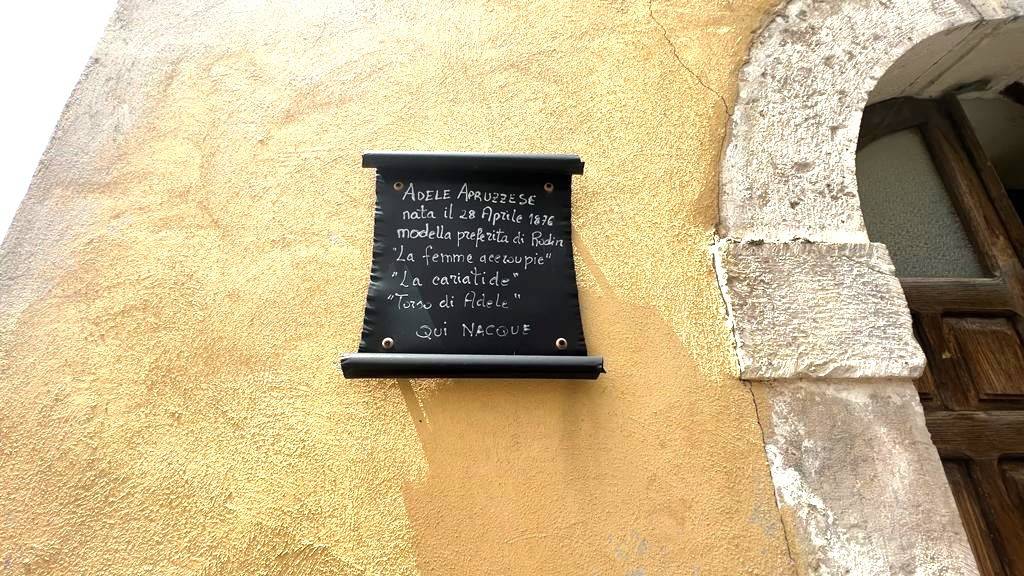 ADELE ABRUZZESE
nata il 28 Aprile 1876
modella preferita di Rodin
"La femme accroupie"
"La cariatide"
"Torso di Adele"
QUI NACQUE